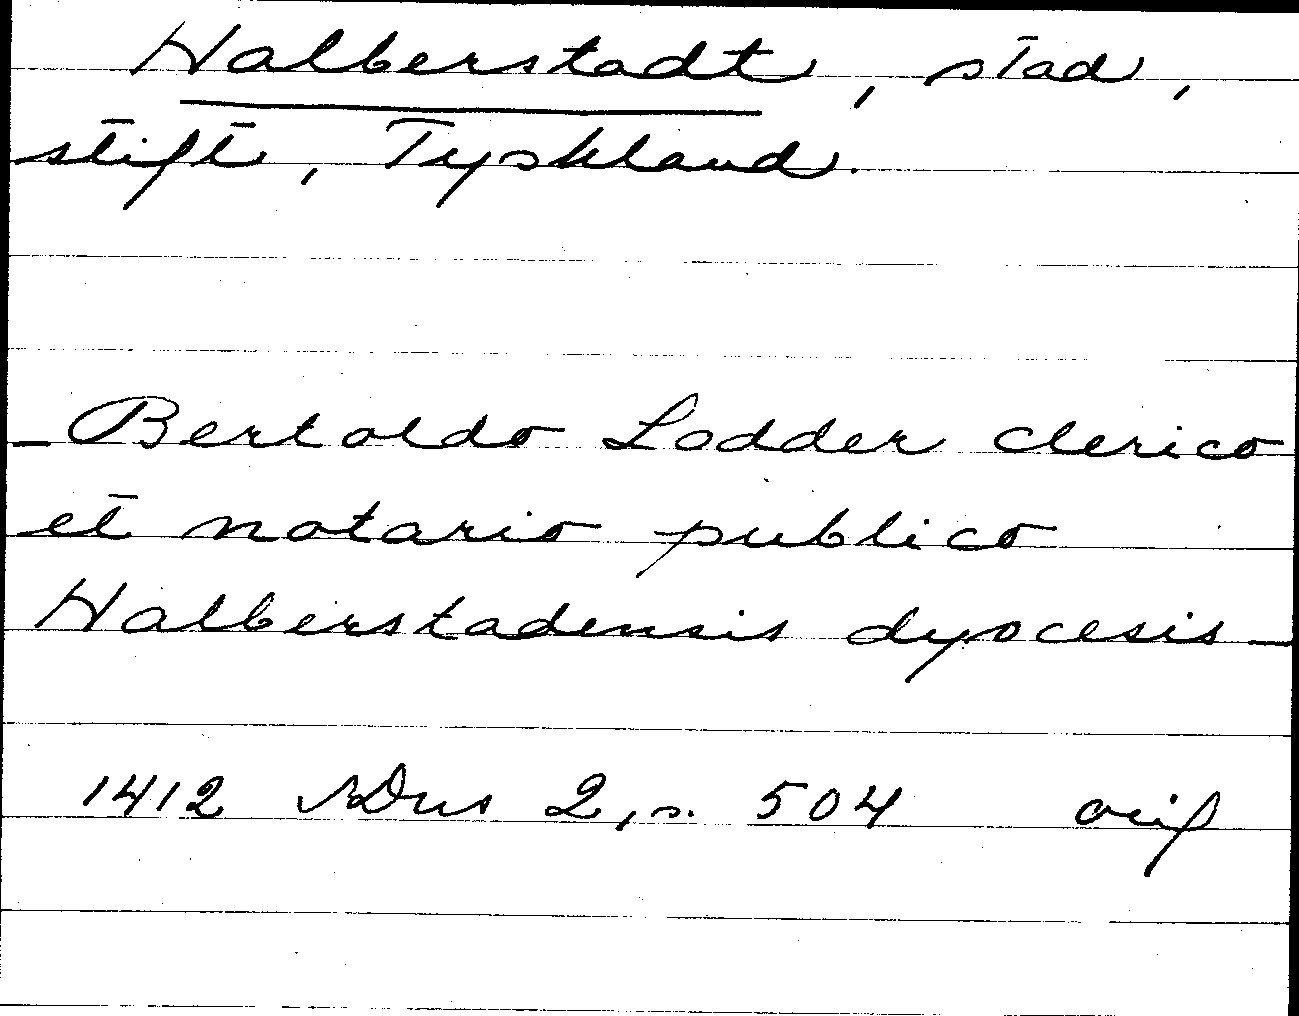 Halberstadt, stad,
stift, Tyskland.
- Bertoldo Ladder clerico
et notario publico
Halberstadensis dyocesis -
1412 SDns 2, s. 504 orig